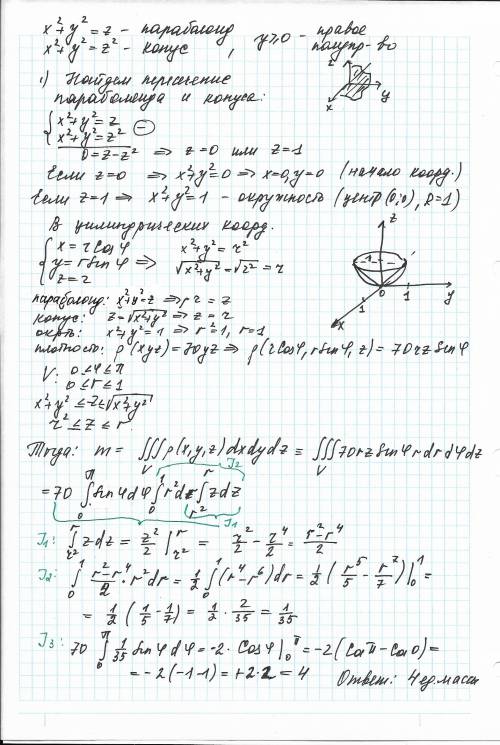 x²+y²=z - параболоид
x²+y²=z² - конус , y≥0 - правое полупр-во
z
y
x
1) Найдем пересечение
параболоида и конуса:
{ x²+y²=z
x²+y²=z² (-)
0=z-z² ⇒ z=0 или z=1
Если z=0 ⇒ x²+y²=0 ⇒ x=0, y=0 (начало коорд.)
Если z=1 ⇒ x²+y²=1 - окружность (центр (0;0), R=1)
В цилиндрических коорд.
{ x=rcosφ x²+y²=r²
y=rsinφ ⇒ √x²+y²=√r²=r
z=z
z
1
0
1
1
y
x
параболоид: x²+y²=z ⇒ r²=z
конус: z=√x²+y² ⇒ z=r
окрть: x²+y²=1 ⇒ r²=1, r=1
плотность: ρ(xyz)=70yz ⇒ ρ(rcosφ, rsinφ, z)=70rzsinφ
V: 0≤φ≤π
0≤r≤1
x²+y²≤z≤√x²+y²
r²≤z≤r
Тогда: m = ∭_V ρ(x,y,z)dxdydz = ∭_V 70rzsinφ rdrdφdz
=70 ∫₀^π sinφdφ ∫₀¹ r²dr ∫_{r²}^r zdz
J2
J1
J1: ∫_{r²}^r zdz = z²/2 |_{r²}^r = r²/2 - r⁴/2 = (r²-r⁴)/2
J2: ∫₀¹ (r²-r⁴)/2 · r²dr = 1/2 ∫₀¹ (r⁴-r⁶)dr = 1/2 (r⁵/5 - r⁷/7)|₀¹ =
= 1/2 (1/5 - 1/7) = 1/2 · 2/35 = 1/35
J3: 70 ∫₀^π 1/35 sinφdφ = -2·cosφ|₀^π = -2(cosπ-cos0) =
= -2(-1-1) = +2·2 = 4 Ответ: 4 ед.массы